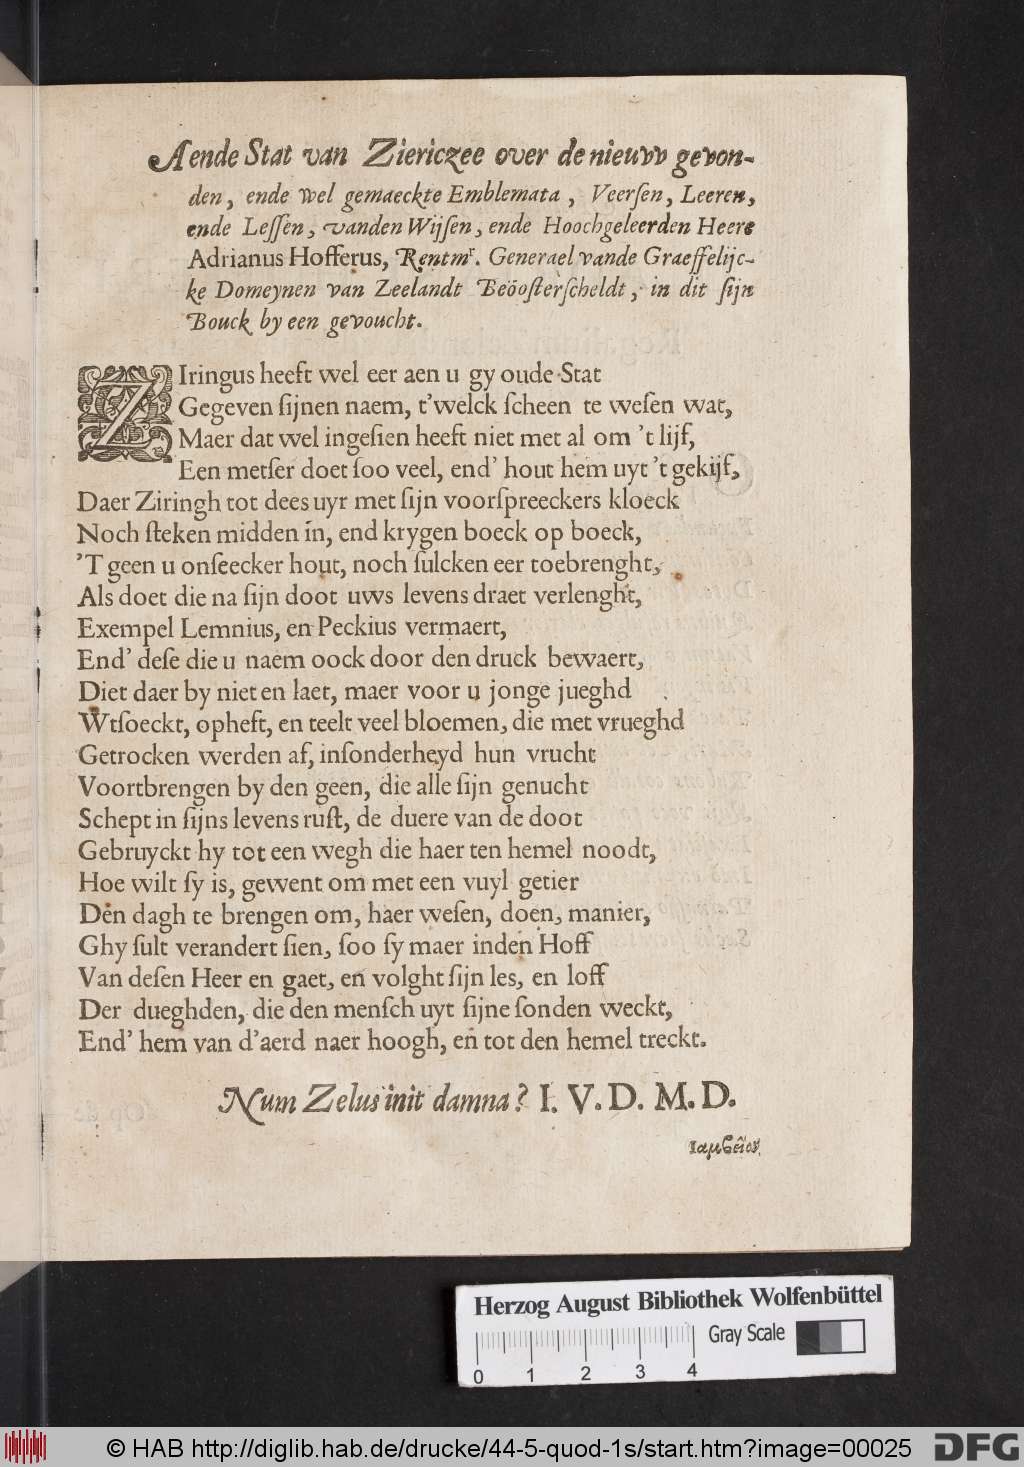 Aende Stat van Ziericzee over de nieuvv gevon-
den, ende wel gemaeckte Emblemata, Veerſen, Leeren,
ende Leſſen, vanden Wijſen, ende Hoochgeleerden Heere
Adrianus Hofferus, Rentmʳ. Generael vande Graeffelijc-
ke Domeynen van Zeelandt Beöoſterſcheldt, in dit ſijn
Bouck by een gevoucht.
ZIringus heeft wel eer aen u gy oude Stat
Gegeven ſijnen naem, t'welck ſcheen te weſen wat,
Maer dat wel ingeſien heeft niet met al om 't lijf,
Een metſer doet ſoo veel, end' hout hem uyt 't gekijf,
Daer Ziringh tot dees uyr met ſijn voorſpreeckers kloeck
Noch ſteken midden in, end krygen boeck op boeck,
'T geen u onſeecker hout, noch ſulcken eer toebrenght,
Als doet die na ſijn doot uws levens draet verlenght,
Exempel Lemnius, en Peckius vermaert,
End' deſe die u naem oock door den druck bewaert,
Diet daer by niet en laet, maer voor u jonge jueghd
Wtſoeckt, opheft, en teelt veel bloemen, die met vrueghd
Getrocken werden af, inſonderheyd hun vrucht
Voortbrengen by den geen, die alle ſijn genucht
Schept in ſijns levens ruſt, de duere van de doot
Gebruyckt hy tot een wegh die haer ten hemel noodt,
Hoe wilt ſy is, gewent om met een vuyl getier
Den dagh te brengen om, haer weſen, doen, manier,
Ghy ſult verandert ſien, ſoo ſy maer inden Hoff
Van deſen Heer en gaet, en volght ſijn les, en loff
Der dueghden, die den menſch uyt ſijne ſonden weckt,
End' hem van d'aerd naer hoogh, en tot den hemel treckt.
Num Zelus init damna? I. V. D. M. D.
Ιαμϐεῖον
Herzog August Bibliothek Wolfenbüttel
Gray Scale
0 1 2 3 4
© HAB http://diglib.hab.de/drucke/44-5-quod-1s/start.htm?image=00025
DFG